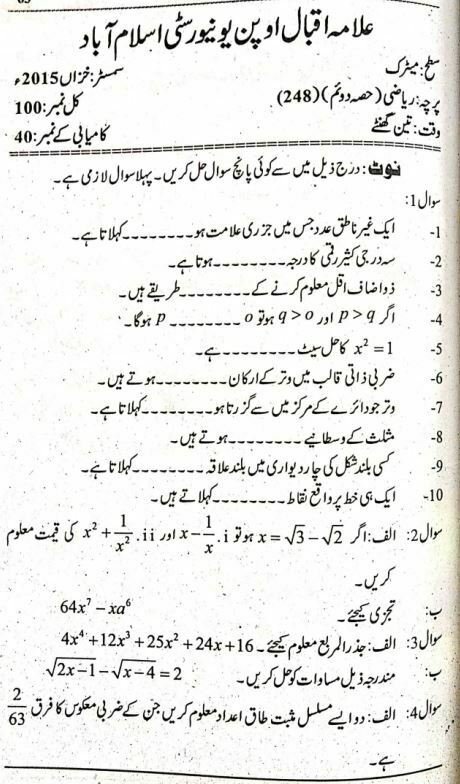 علامہ اقبال اوپن یونیورسٹی اسلام آباد
سطح: میٹرک
سمسٹر: خزاں 2015ء
پرچہ: ریاضی (حصہ دوئم) (248)
کل نمبر: 100
وقت: تین گھنٹے
کامیابی کے نمبر: 40
نوٹ: درج ذیل میں سے کوئی پانچ سوال حل کریں۔ پہلا سوال لازمی ہے۔
سوال 1:
1- ایک غیر ناطق عدد جس میں جزری علامت ہو ________ کہلاتا ہے۔
2- سہ درجی کثیر رقمی کا درجہ ________ ہوتا ہے۔
3- ذواضاف اقل معلوم کرنے کے ________ طریقے ہیں۔
4- اگر p > q اور q > o ہو تو p ________ o ہوگا۔
5- x² = 1 کا حل سیٹ ________ ہے۔
6- ضربی ذاتی قالب میں وتر کے ارکان ________ ہوتے ہیں۔
7- وتر جو دائرے کے مرکز میں سے گزرتا ہو ________ کہلاتا ہے۔
8- مثلث کے وسطانیے ________ ہوتے ہیں۔
9- کسی بلند شکل کی چار دیواری میں بلند علاقہ ________ کہلاتا ہے۔
10- ایک ہی خط پر واقع نقاط ________ کہلاتے ہیں۔
سوال 2: الف: اگر x = √3 − √2 ہو تو i. x − 1/x اور ii. x² + 1/x² کی قیمت معلوم
کریں۔
ب: تجزی کیجئے۔ 64x⁷ − xa⁶
سوال 3: الف: جذر المربع معلوم کیجئے۔ 4x⁴ + 12x³ + 25x² + 24x + 16
ب: مندرجہ ذیل مساوات کو حل کریں۔ √(2x−1) − √(x−4) = 2
سوال 4: الف: دو ایسے مسلسل مثبت طاق اعداد معلوم کریں جن کے ضربی معکوس کا فرق 2/63
ہے۔